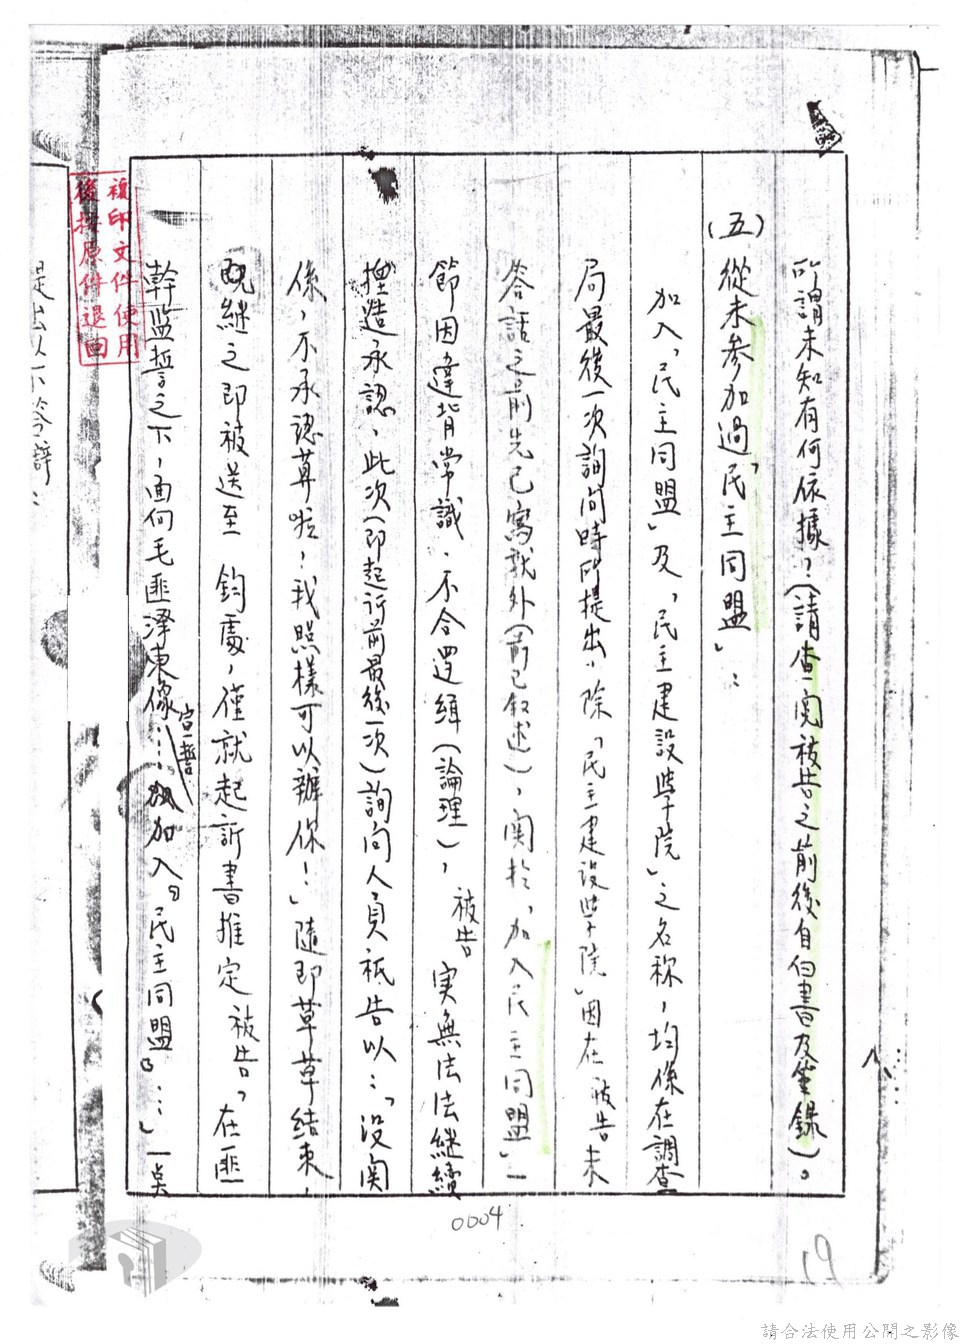 所謂未知有何依據？（請查閱被告之前後自白書及筆錄）。
(五)從未參加過「民主同盟」：
加入「民主同盟」及「民主建設學院」之名称，均係在調查
局最後一次詢问時所提出，除「民主建設學院」因在被告未
答話之前先已寫就外（前已叙述），関於「加入民主同盟」一
節因違背常識、不合邏輯（論理），被告实無法法継續
捏造承認，此次（即起訴前最後一次）詢问人員祇告以：「沒関
係，不承認算啦！我照樣可以辦你！」隨即草草結束，
継之即被送至 鈞處，僅就起訴書推定被告「在匪
幹監誓之下，面向毛匪澤東像宣誓……加入『民主同盟』……」一莫
複印文件使用
後按原件退回
0004
19
請合法使用公開之影像